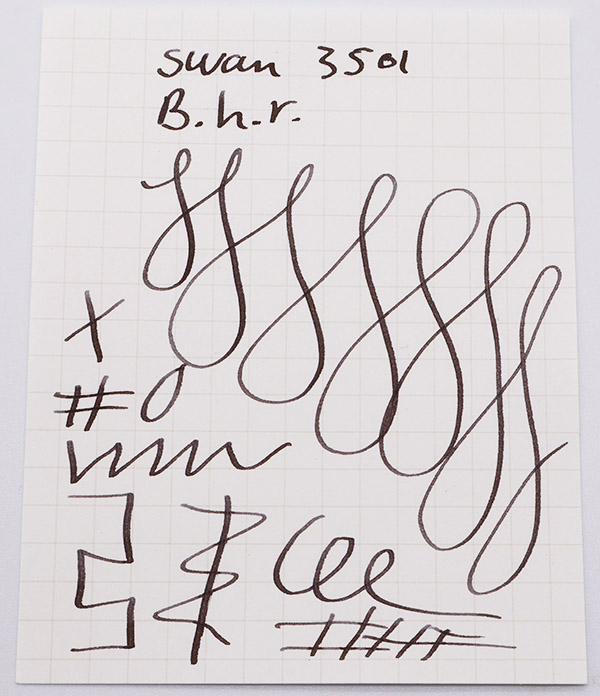 Swan 3501
B.h.r.